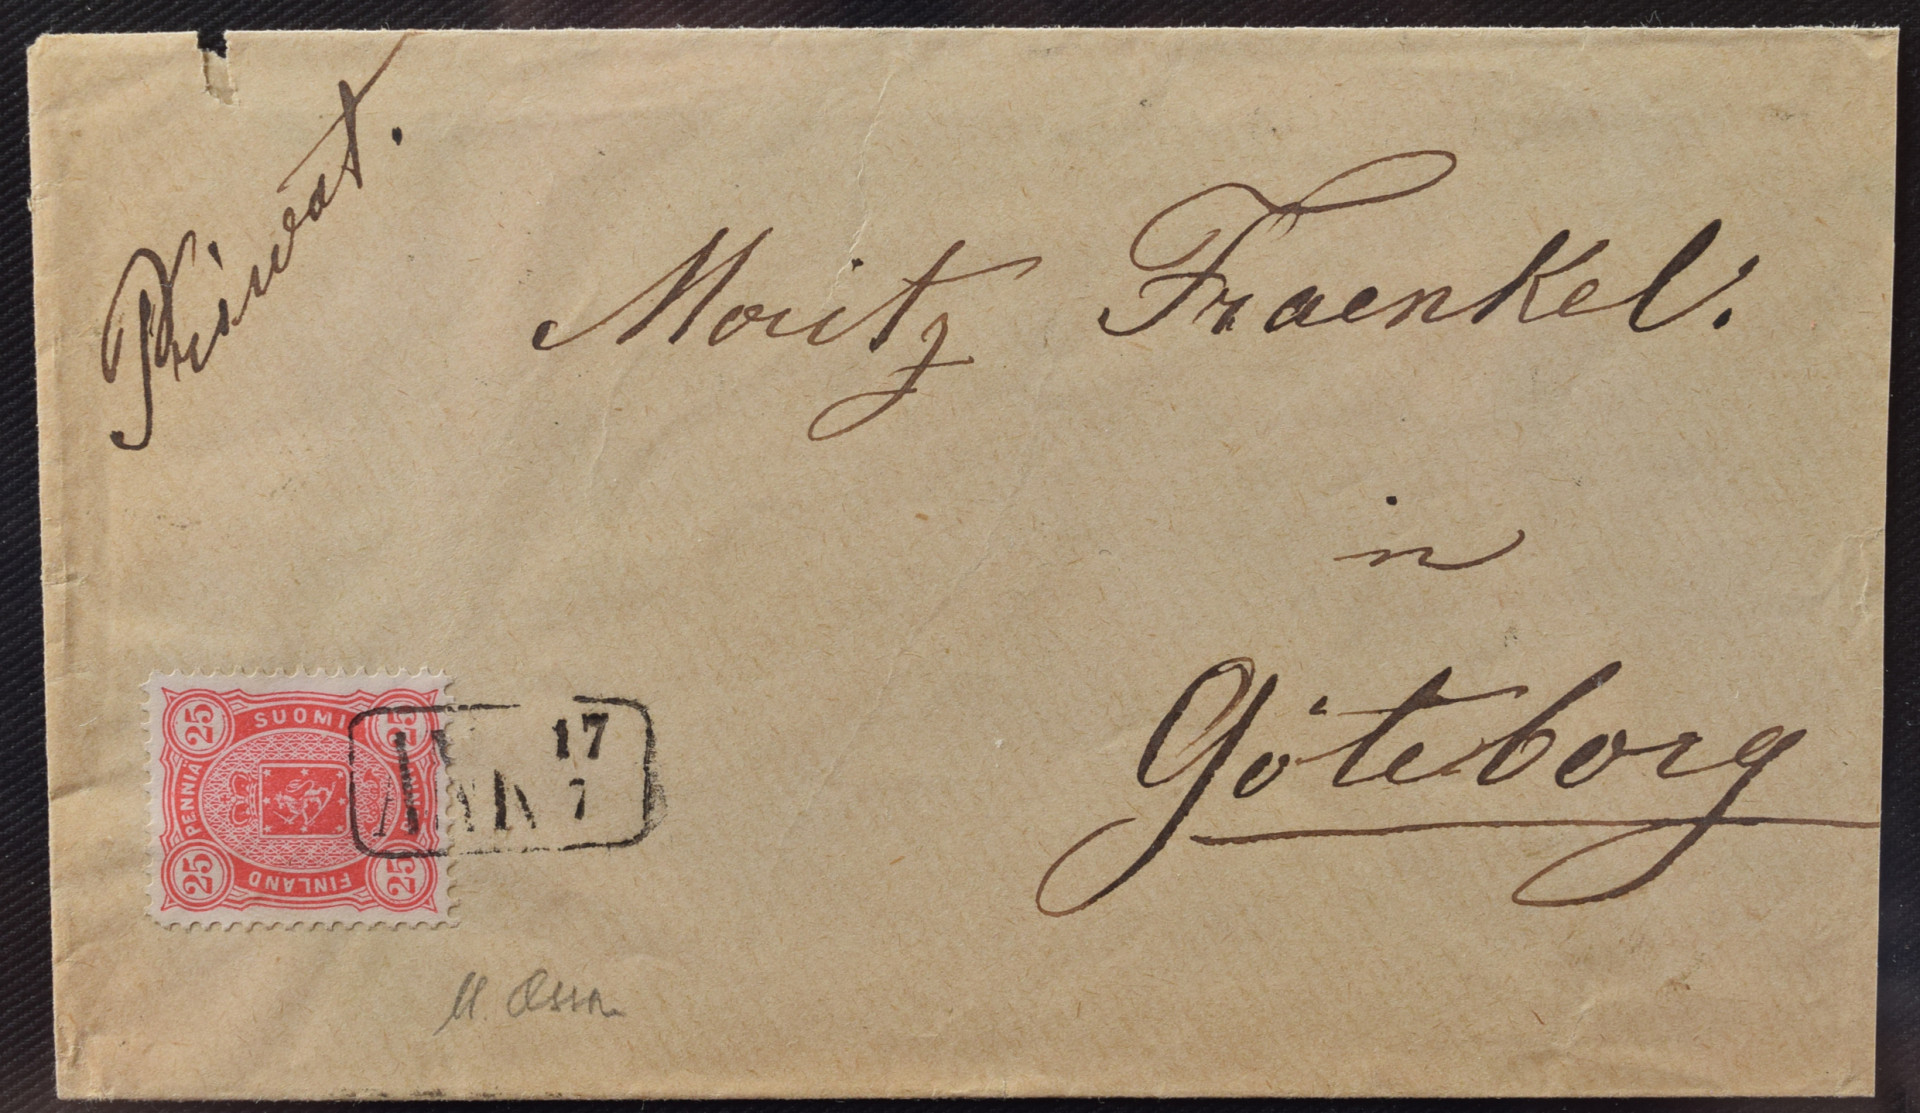 Privat.
Moritz Fraenkel.
in
Göteborg
25 SUOMI 25
PENNIÄ
25 FINLAND 25
17
ANK 7